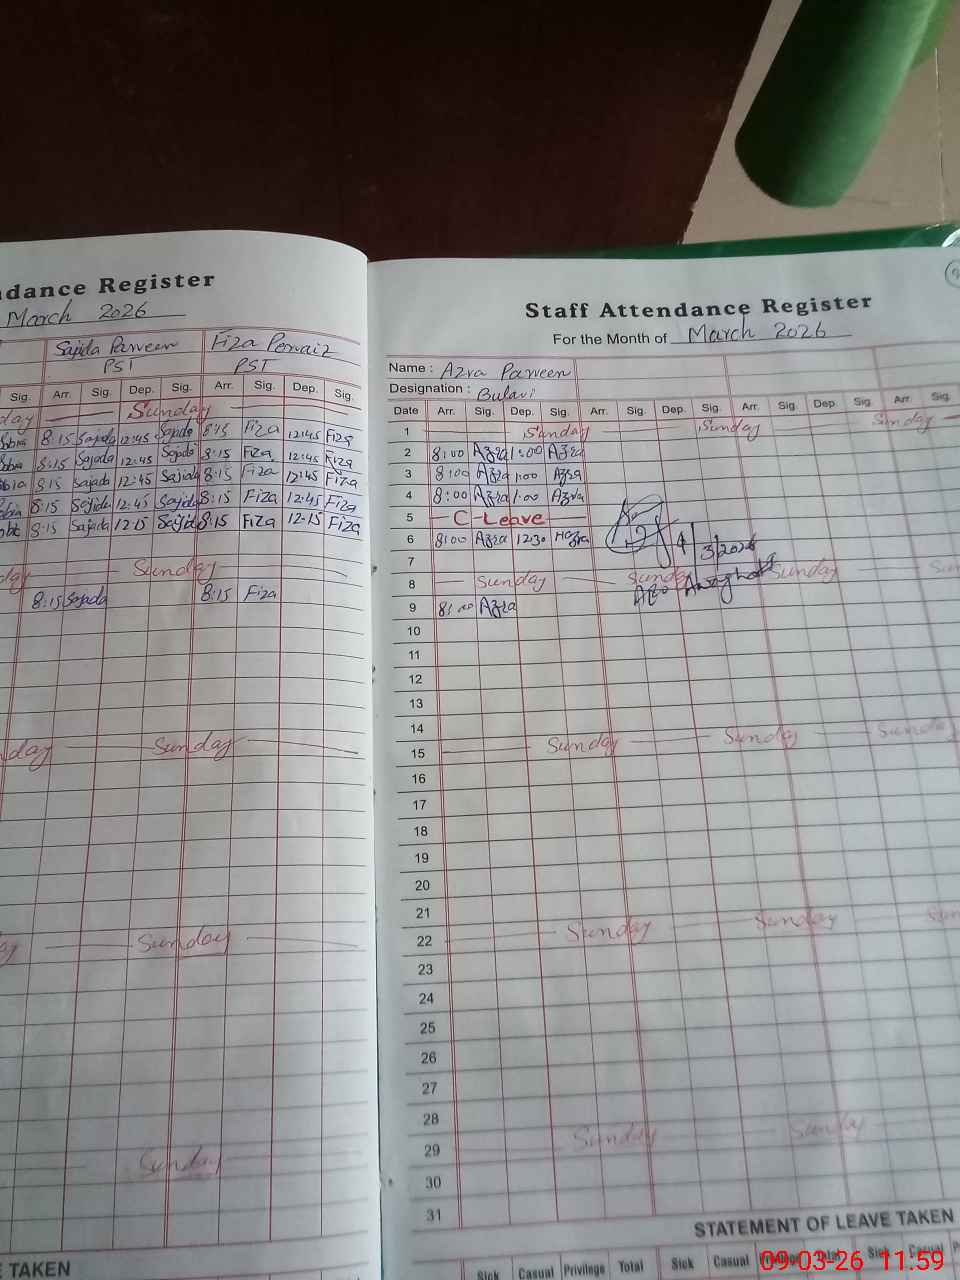 ndance Register
March 2026
Sajida Parveen Fiza Pervaiz
PST PST
Sig. Arr. Sig. Dep. Sig. Arr. Sig. Dep. Sig.
day Sunday
8:15 Sajada 12:45 Sajada 8:15 Fiza 12:45 Fiza
8:15 Sajada 12:45 Sajada 8:15 Fiza 12:45 Fiza
8:15 Sajada 12:45 Sajida 8:15 Fiza 12:45 Fiza
8:15 Sajida 12:45 Sajida 8:15 Fiza 12:45 Fiza
8:15 Sajada 12:15 Sajida 8:15 Fiza 12-15 Fiza
day Sunday
8:15 Sajada 8:15 Fiza
day Sunday
day Sunday
Sunday
E TAKEN
Staff Attendance Register
For the Month of March 2026
Name : Azra Parveen
Designation : Bulavi
Date Arr. Sig. Dep. Sig. Arr. Sig. Dep. Sig. Arr. Sig. Dep. Sig. Arr. Sig.
1 Sunday Sunday Sunday
2 8:00 Azra 1:00 Azra
3 8:00 Azra 1:00 Azra
4 8:00 Azra 1:00 Azra
5 C-Leave
6 8:00 Azra 12:30 Azra
4/3/2026
7
8 Sunday Sunday Sunday Sun
9 8:00 Azra
10
11
12
13
14
15 Sunday Sunday Sunday
16
17
18
19
20
21
22 Sunday Sunday Sun
23
24
25
26
27
28
29 Sunday Sunday
30
31
STATEMENT OF LEAVE TAKEN
Sick Casual Privilege Total Sick Casual Privilege Total Sick Casual P
09-03-26 11:59